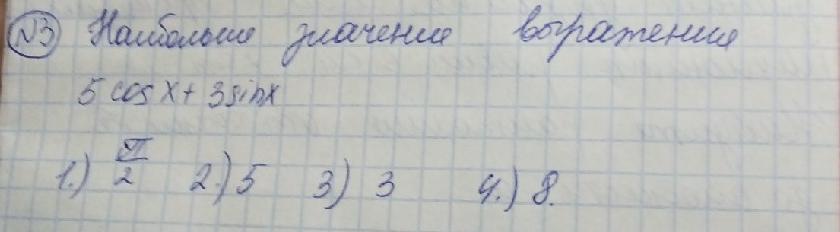 №3 Наибольше значение выражения
5 cos x + 3 sin x
1.) π/2 2.) 5 3) 3 4.) 8.